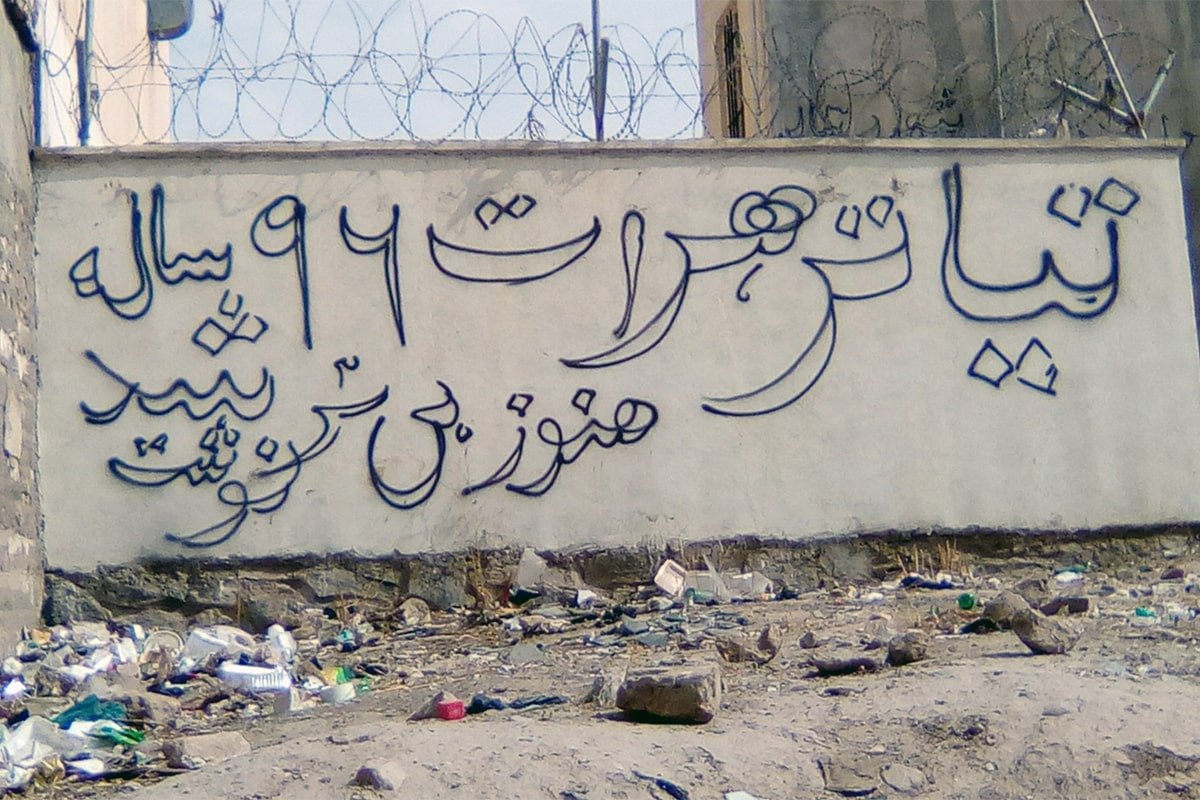 تیاتر هرات ۹۶ ساله
شد
هنوز بی سرنوشت